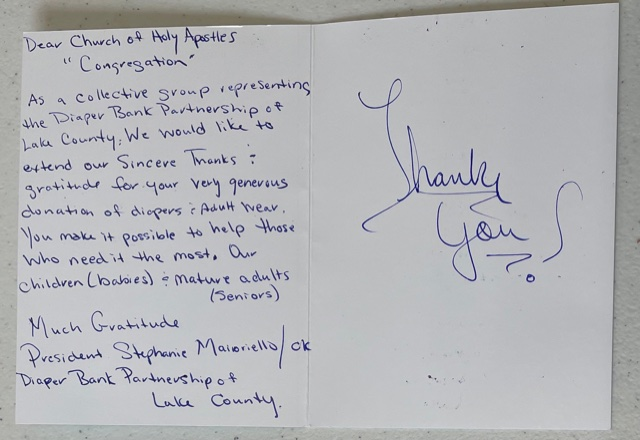 Dear Church of Holy Apostles
"Congregation"
As a collective group representing
the Diaper Bank Partnership of
Lake County, We would like to
extend our Sincere Thanks &
gratitude for your very generous
donation of diapers & Adult wear.
You make it possible to help those
who need it the most. Our
children (babies) & mature adults
(Seniors)
Much Gratitude
President Stephanie Maioriello/ck
Diaper Bank Partnership of
Lake County.
Thank
You